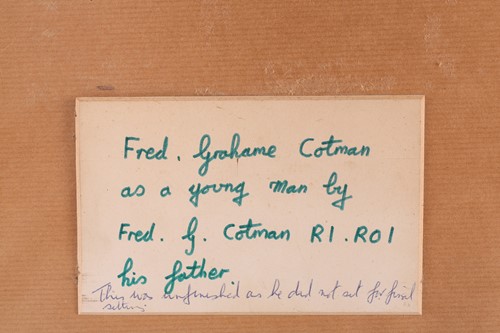 Fred. Grahame Cotman
as a young man by
Fred. G. Cotman RI. ROI
his father.
This was unfinished as he did not sit for final
sitting